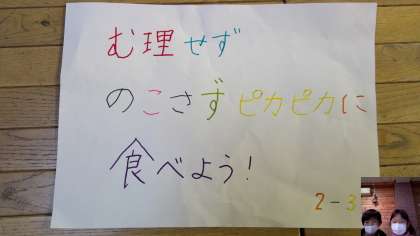 む理せず
のこさずピカピカに
食べよう！
2-3